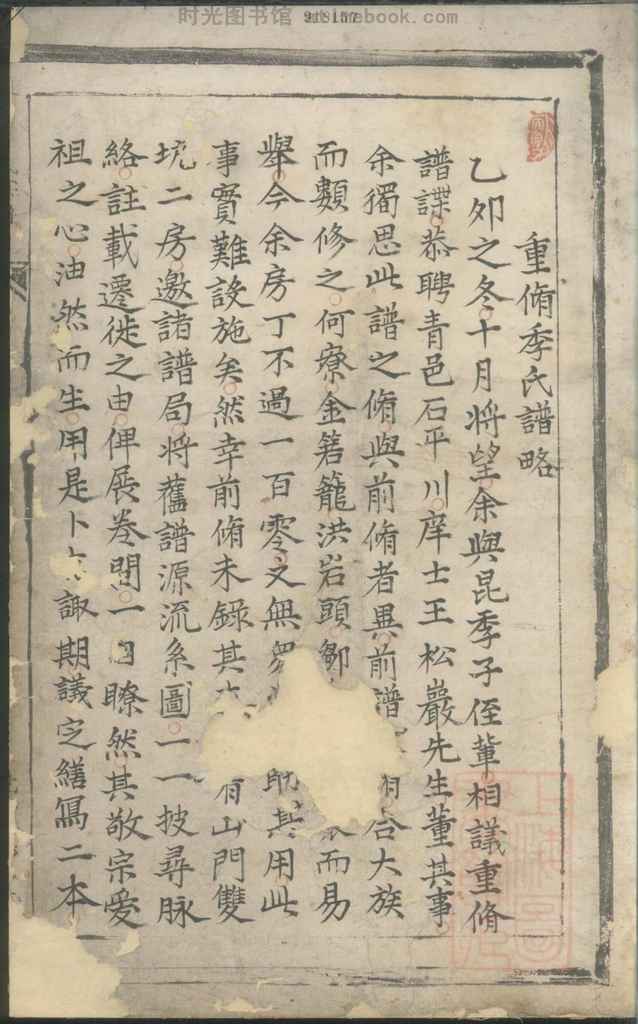 时光图书馆 atsinebook.com
915157
重脩季氏譜略
乙夘之冬十月将望余與昆季子侄軰相議重脩
譜諜恭聘青邑石平川庠士王松巖先生董其事
余獨思此譜之脩與前脩者異前譜合大族
而數修之何寮金箬籠洪岩頭鄒而易
舉今余房丁不過一百零又無助其用此
事實難設施矣然幸前脩未録其有山門雙
坑二房邀諸譜局将舊譜源流系圖一一披尋脉
絡註載遷徙之由俾展卷間一目瞭然其敬宗愛
祖之心油然而生用是卜諏期議定繕寫二本